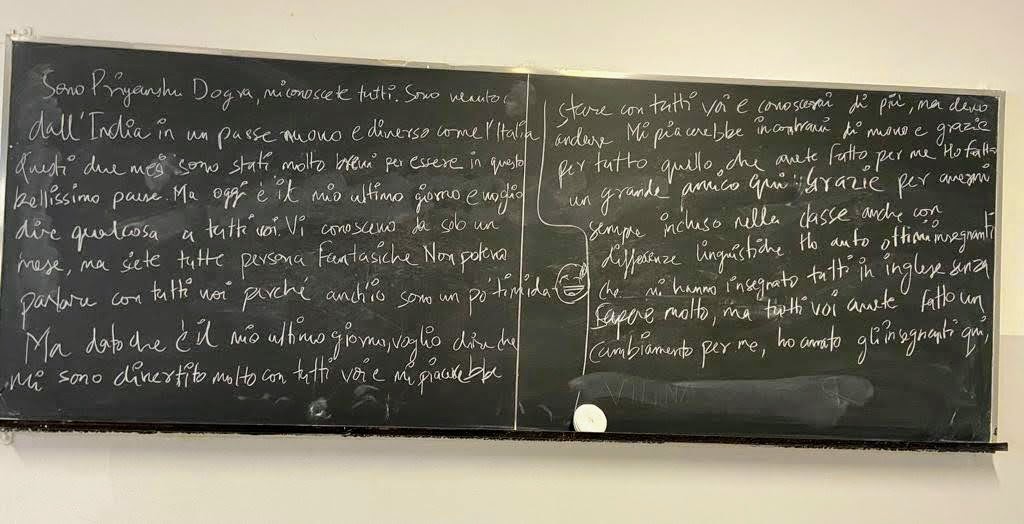 Sono Priyanshu Dogra, mi conoscete tutti. Sono venuto
dall'India in un paese nuovo e diverso come l'Italia
Questi due mesi sono stati molto brevi per essere in questo
bellissimo paese. Ma oggi è il mio ultimo giorno e voglio
dire qualcosa a tutti voi. Vi conoscevo da solo un
mese, ma siete tutte persona Fantasiche Non potevo
parlare con tutti voi perché anch'io sono un pò timida
Ma dato che è il mio ultimo giorno, voglio dire che
mi sono divertito molto con tutti voi e mi piacerebbe
stare con tutti voi e conoscervi di più, ma devo
andare Mi piacerebbe incontrarvi di nuovo e grazie
per tutto quello che avete fatto per me Ho fatto
un grande amico qui Grazie per avermi
sempre incluso nella classe anche con
differenze linguistiche Ho avuto ottimi insegnanti
che mi hanno insegnato tutti in inglese senza
sapere molto, ma tutti voi avete fatto un
cambiamento per me, ho amato gli insegnanti qui,